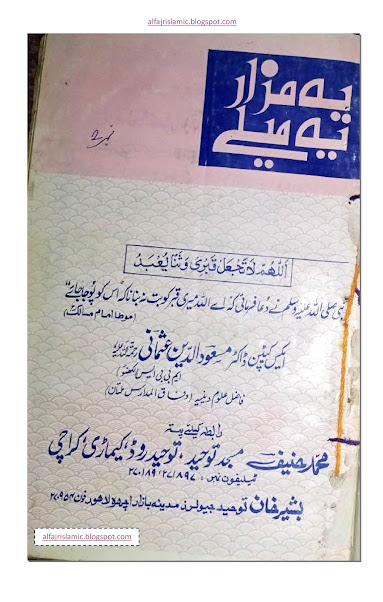 alfajrislamic.blogspot.com
یہ مزار
یہ میلے
اَللّٰهُمَّ لَا تَجْعَلْ قَبْرِیْ وَثَنًا یُّعْبَدُ
نبی صلی اللہ علیہ وسلم نے دعا فرمائی کہ اے اللہ میری قبر کو بت نہ بنانا کہ اس کو پوجا جائے
(موطا امام مالک)
ایکس کیپٹن ڈاکٹر مسعود الدین عثمانی
ایم بی بی ایس لکھنؤ
فاضل علوم دینیہ (وفاق المدارس ملتان)
رابطہ کیلئے پتہ
محمد حنیف مسجد توحید، توحید روڈ کیماڑی کراچی
ٹیلیفون نمبر:
بشیر خان توحید جیولرز مدینہ بازار اچھرہ لاہور فون
alfajrislamic.blogspot.com